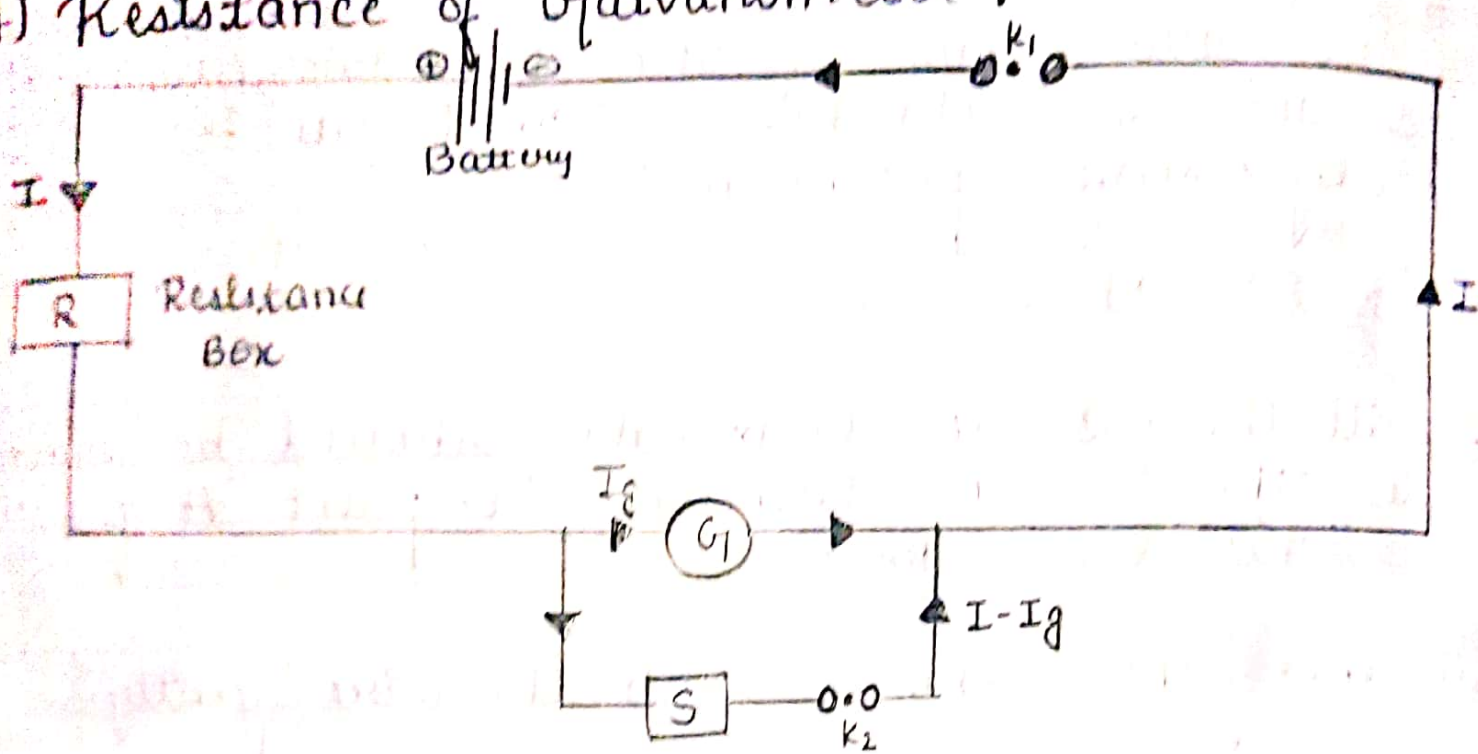 Resistance of Galvanometer
K1
+ -
Battery
I
R Resistance
Box
I
Ig
G
I-Ig
S
K2